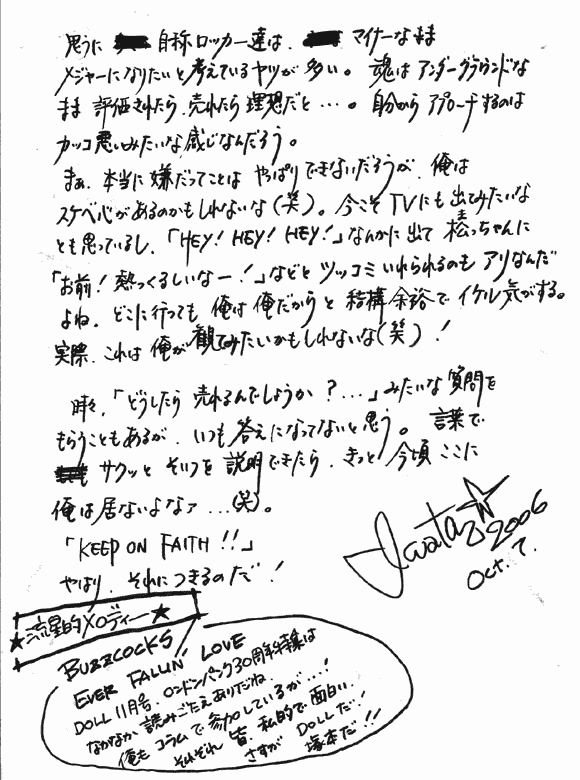 思うに 自称ロッカー達は、 マイナーなまま
メジャーになりたいと考えているヤツが多い。 魂はアンダーグラウンドな
まま 評価されたら、売れたら理想だと…。 自分からアプローチするのは
カッコ悪いみたいな感じなんだろう。
まぁ、本当に嫌だってことは やっぱりできないだろうが、俺は
スケベ心があるのかもしれないな(笑)。今こそTVにも出てみたいな
とも思っているし、「HEY! HEY! HEY!」なんかに出て 松っちゃんに
「お前！熱っくるしいなー！」などと ツッコミいれられるのも アリなんだ
よね。どこに行っても 俺は俺だからと 結構余裕で イケル気がする。
実際、これは俺が観てみたいかもしれないな(笑)！
時々、「どうしたら 売れるんでしょうか？…」みたいな質問を
もらうこともあるが、いつも答えになってないと思う。 言葉で
サクッと そいつを説明できたら、きっと 今頃ここに
俺は居ないよなァ…(笑)。
「KEEP ON FAITH!!」
やはり、それにつきるのだ！
2006
Oct. 7.
★流星的メロディー★
BUZZCOCKS
EVER FALLIN' LOVE
DOLL 11月号、ロンドンパンク30周年特集は
なかなか読みごたえありだね。
俺もコラムで参加しているが…！
それぞれ 皆、私的で面白い。
さすが DOLLだ！
塚本だ!!